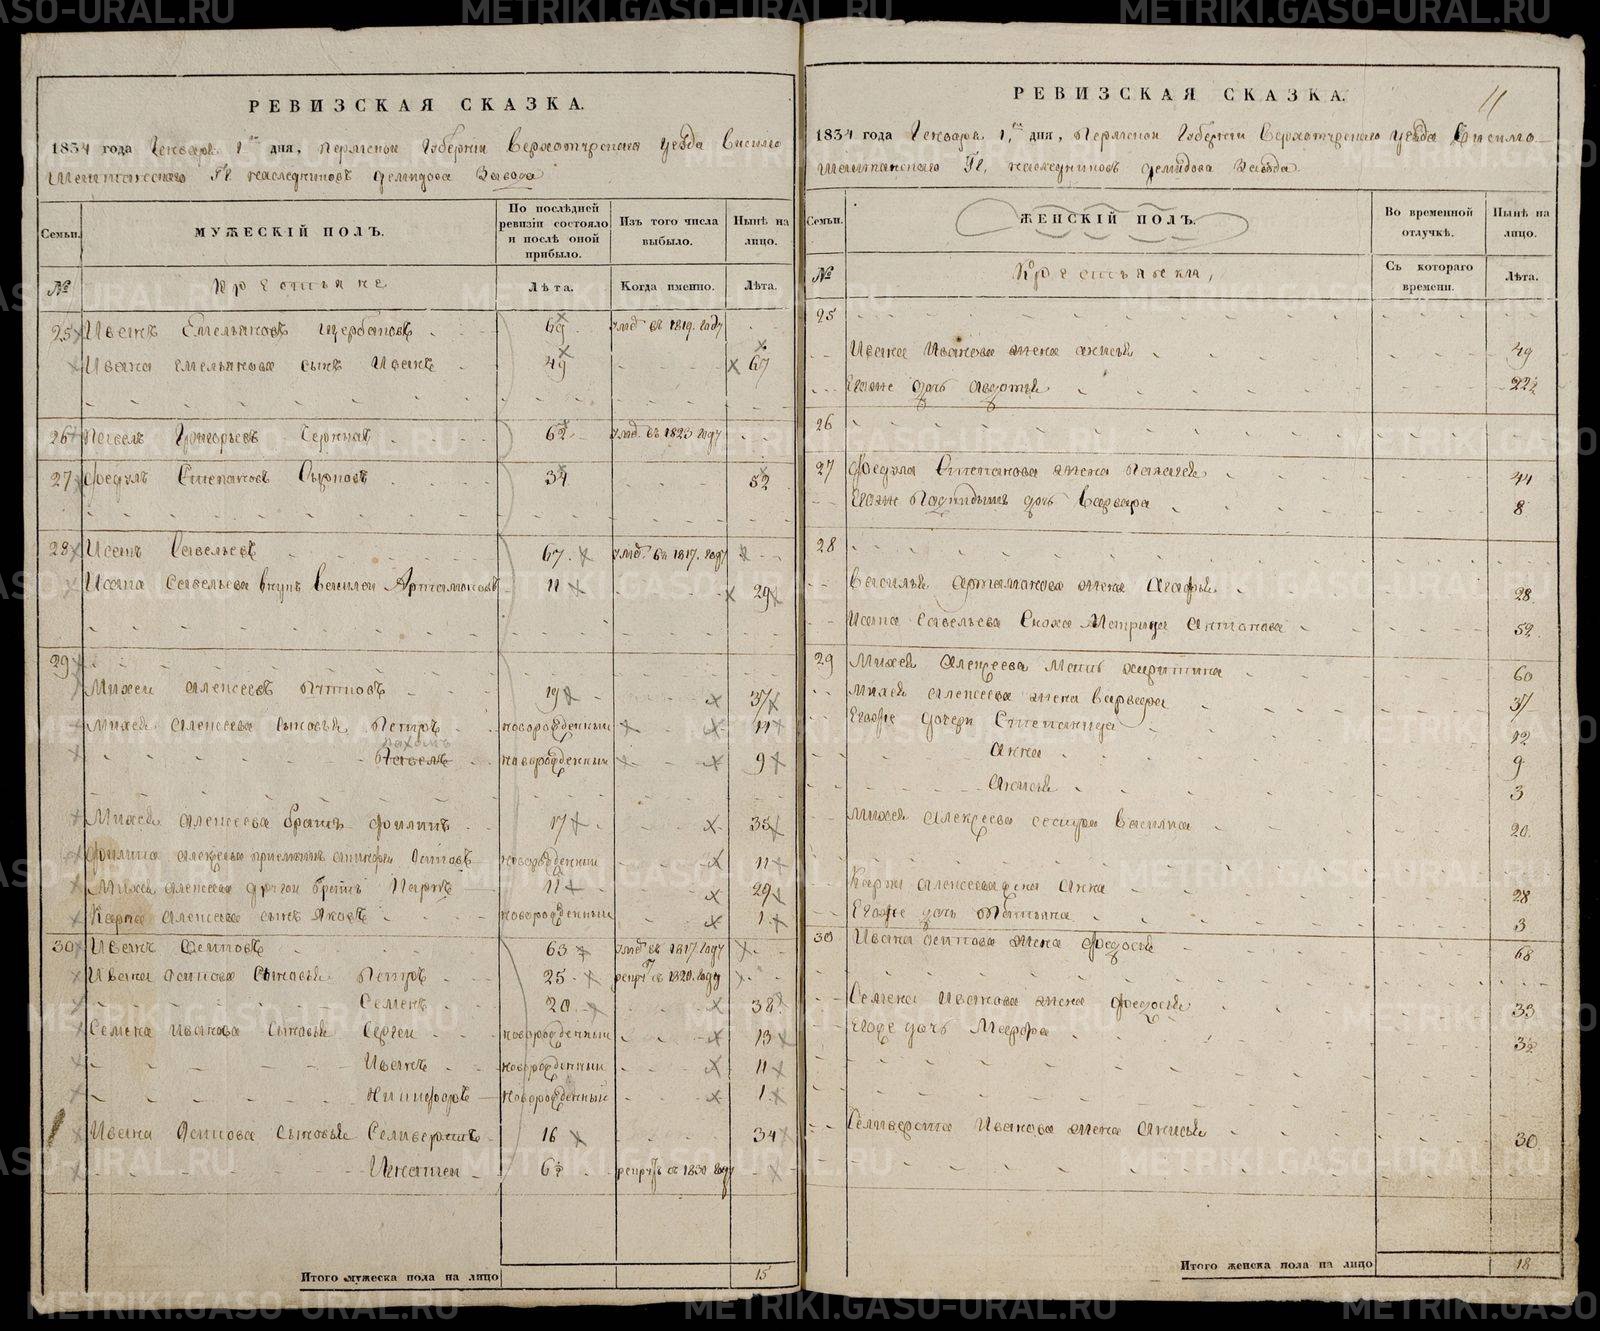 РЕВИЗСКАЯ СКАЗКА.
1834 года Генваря 1го дня, Пермской Губернии Верхотурскаго уезда Висимо
Шайтанскаго Гг. наследников Демидова Завода
Семьи.
МУЖЕСКІЙ ПОЛЪ.
По послѣдней ревизіи состояло и послѣ оной прибыло.
Изъ того числа выбыло.
Нынѣ на лицо.
№
Крестьяне
Лѣта.
Когда именно.
Лѣта.
25 Иванъ Емельяновъ Щербаковъ 69 умр. въ 1819. году
Ивана Емельянова сынъ Иванъ 49 67
26 Павелъ Григорьевъ 62 умр. въ 1823 году
27 Федулъ Степановъ 34 52
28 Исакъ Савельевъ 67. умр. въ 1817. году
Савельева внукъ Василей Артамоновъ 11 29
29
Михей Алексеевъ 19 37
Михея Алексеева сыновья Петръ новорожденный 11
Пахомъ
Павелъ новорожденный 9
Михея Алексеева братъ Филипъ 17 35
Филипа Алексеева приемышъ Осиповъ новорожденный 11
Михея Алексеева другой братъ Карпъ 11 29
Карпа Алексеева сынъ Яковъ новорожденный 1
30 Иванъ Осиповъ 63 умр. въ 1817. году
Ивана Осипова сыновья Петръ 25 рекрут. въ 1820. году
Семенъ 20 38
Семена Иванова сыновья Сергей новорожденный 13
Иванъ новорожденный 11
Никифоръ новорожденный 1
Ивана Осипова сыновья Селиверстъ 16 34
Игнатей 6½ рекрут. въ 1830 году
Итого мужеска пола на лицо 15
11
РЕВИЗСКАЯ СКАЗКА.
1834 года Генваря 1го дня, Пермской Губернии Верхотурскаго уезда Висимо-
Шайтанскаго Гг. наследников Демидова Завода
Семьи.
ЖЕНСКІЙ ПОЛЪ.
Во временной отлучкѣ.
Нынѣ на лицо.
№
Крестьянска,
Съ котораго времени.
Лѣта.
25
Ивана Иванова жена Анисья 49
Егоже дочь Авдотья 22½
26
27 Федула Степанова жена Пелагея 44
Егоже дочь Варвара 8
28
Василья Артамонова жена Агафья 28
Савельева сноха Матрена Антонова 52
29 Михея Алексеева мать Харитина 60
Михея Алексеева жена Варвара 37
Егоже дочери Степанида 12
Анна 9
Анисья 3
Михея Алексеева сестра Василиса 20.
Карпа Алексеева жена Анна 28
Егоже дочь Татьяна 3
30 Ивана Осипова жена Федосья 68
Семена Иванова жена Федосья 33
Егоже дочь Марфа 3½
Селиверста Иванова жена Анисья 30
Итого женска пола на лицо 18
METRIKI.GASO-URAL.RU